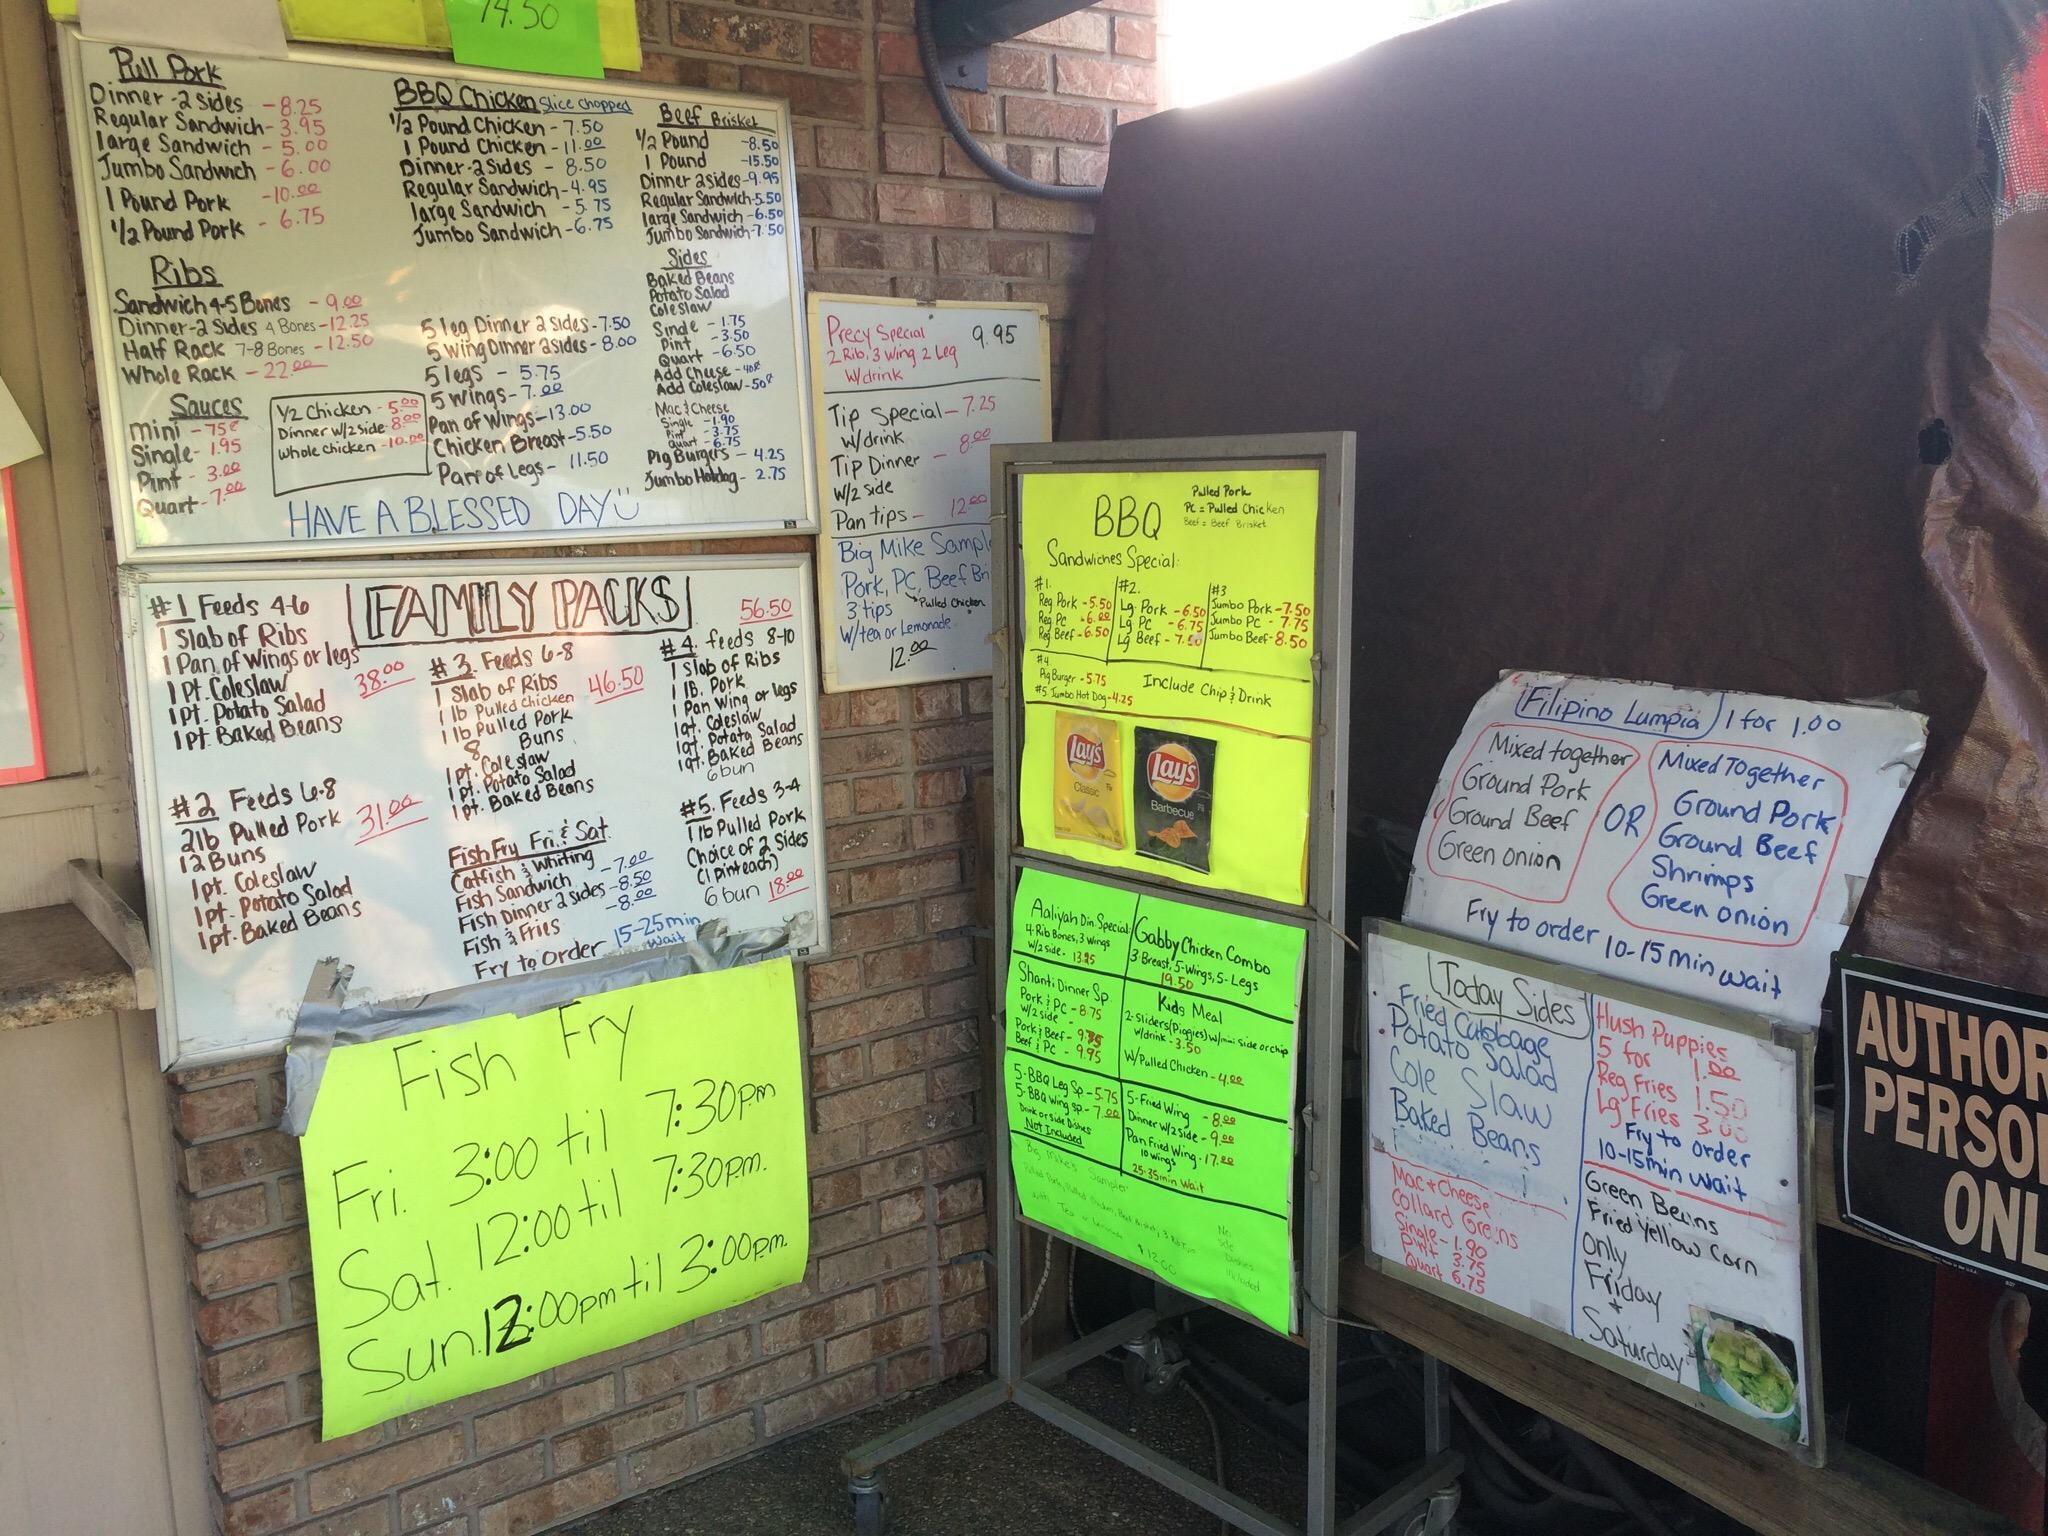 14.50
Pull Pork
Dinner-2 Sides - 8.25
Regular Sandwich - 3.95
large Sandwich - 5.00
Jumbo Sandwich - 6.00
1 Pound Pork - 10.00
1/2 Pound Pork - 6.75
Ribs
Sandwich 4-5 Bones - 9.00
Dinner-2 Sides 4 Bones - 12.25
Half Rack 7-8 Bones - 12.50
Whole Rack - 22.00
Sauces
mini - 75¢
Single - 1.95
Pint - 3.00
Quart - 7.00
1/2 Chicken - 5.00
Dinner w/2 side - 8.00
whole chicken - 10.00
BBQ Chicken Slice chopped
1/2 Pound Chicken - 7.50
1 Pound Chicken - 11.00
Dinner-2 Sides - 8.50
Regular Sandwich - 4.95
large Sandwich - 5.75
Jumbo Sandwich - 6.75
5 leg Dinner 2 sides - 7.50
5 wing Dinner 2 sides - 8.00
5 legs - 5.75
5 wings - 7.00
Pan of Wings - 13.00
Chicken Breast - 5.50
Pan of Legs - 11.50
Beef Brisket
1/2 Pound - 8.50
1 Pound - 15.50
Dinner 2 sides - 9.95
Regular Sandwich - 5.50
large Sandwich - 6.50
Jumbo Sandwich - 7.50
Sides
Baked Beans
Potato Salad
Coleslaw
Sinde - 1.75
Pint - 3.50
Quart - 6.50
Add Cheese - 40¢
Add Coleslaw - 50¢
Mac & Cheese
Single - 1.90
Pint - 3.75
Quart - 6.75
Pig Burgers - 4.25
Jumbo Hotdog - 2.75
HAVE A BLESSED DAY
FAMILY PACKS
#1 Feeds 4-6
1 Slab of Ribs
1 Pan of Wings or legs
1 Pt. Coleslaw
1 pt. Potato Salad
1 pt. Baked Beans
38.00
#2 Feeds 6-8
2 lb Pulled Pork
12 Buns
1 pt. Coleslaw
1 pt. Potato Salad
1 pt. Baked Beans
31.00
#3 Feeds 6-8
1 Slab of Ribs
1 lb Pulled chicken
1 lb Pulled Pork
8 Buns
1 pt. Coleslaw
1 pt. Potato Salad
1 pt. Baked Beans
46.50
Fish Fry Fri. & Sat.
Catfish & Whiting
Fish Sandwich - 7.00
Fish Dinner 2 sides - 8.50
Fish & Fries - 8.00
Fry to Order 15-25 min wait
56.50
#4. feeds 8-10
1 Slab of Ribs
1 lb. Pork
1 Pan Wing or legs
1 qt. Coleslaw
1 qt. Potato Salad
1 qt. Baked Beans
6 bun
#5. Feeds 3-4
1 lb Pulled Pork
Choice of 2 Sides
(1 pint each)
6 bun 18.00
Fish Fry
Fri. 3:00 til 7:30pm
Sat. 12:00 til 7:30p.m.
Sun. 12:00pm til 3:00p.m.
Precy Special 9.95
2 Rib, 3 Wing 2 Leg
w/drink
Tip Special - 7.25
w/drink
Tip Dinner - 8.00
w/2 side
Pan tips - 12.00
Big Mike Sampl
Pork, PC, Beef Bri
Pulled Chicken
3 tips
w/tea or Lemonade
12.00
BBQ
Pulled Pork
PC = Pulled Chicken
Beef = Beef Brisket
Sandwiches Special:
#1.
Reg Pork - 5.50
Reg PC - 6.00
Reg. Beef - 6.50
#2.
Lg. Pork - 6.50
Lg PC - 6.75
Lg Beef - 7.50
#3
Jumbo Pork - 7.50
Jumbo PC - 7.75
Jumbo Beef - 8.50
#4.
Pig Burger - 5.75
#5 Jumbo Hot Dog - 4.25
Include Chip & Drink
Lay's
Classic
Lay's
Barbecue
Aaliyah Din Special
4 Rib Bones, 3 wings
w/2 side - 13.25
Gabby Chicken Combo
3 Breast, 5-Wings, 5-Legs
19.50
Shanti Dinner Sp.
Pork & PC - 8.75
w/2 side
Pork & Beef -
Beef & PC - 9.95
Kids Meal
2-Sliders (Piggies) w/mini side or chip
w/drink - 3.50
w/Pulled Chicken - 4.00
5-BBQ Leg Sp - 5.75
5-BBQ Wing Sp - 7.00
Drink or side Dishes
Not Included
5-Fried Wing - 8.00
Dinner w/2 side - 9.00
Pan Fried Wing - 17.00
10 wings
25-35 min Wait
Big Mike's Sampler
Pulled Pork, Pulled Chicken, Beef Brisket, 3 Rib Tips
with
Tea or Lemonade
$12.00
No
side
Dishes
included
Filipino Lumpia 1 for 1.00
Mixed together
Ground Pork
Ground Beef
Green onion
OR
Mixed Together
Ground Pork
Ground Beef
Shrimps
Green onion
Fry to order 10-15 min wait
Today Sides
Fried Cabbage
Potato Salad
Cole Slaw
Baked Beans
Mac + Cheese
Collard Greens
Single - 1.90
Pint 3.75
Quart 6.75
Hush Puppies
5 for 1.00
Reg Fries 1.50
Lg Fries 3.00
Fry to order
10-15 min wait
Green Beans
Fried Yellow Corn
only
Friday
+
Saturday
AUTHOR
PERSO
ONL